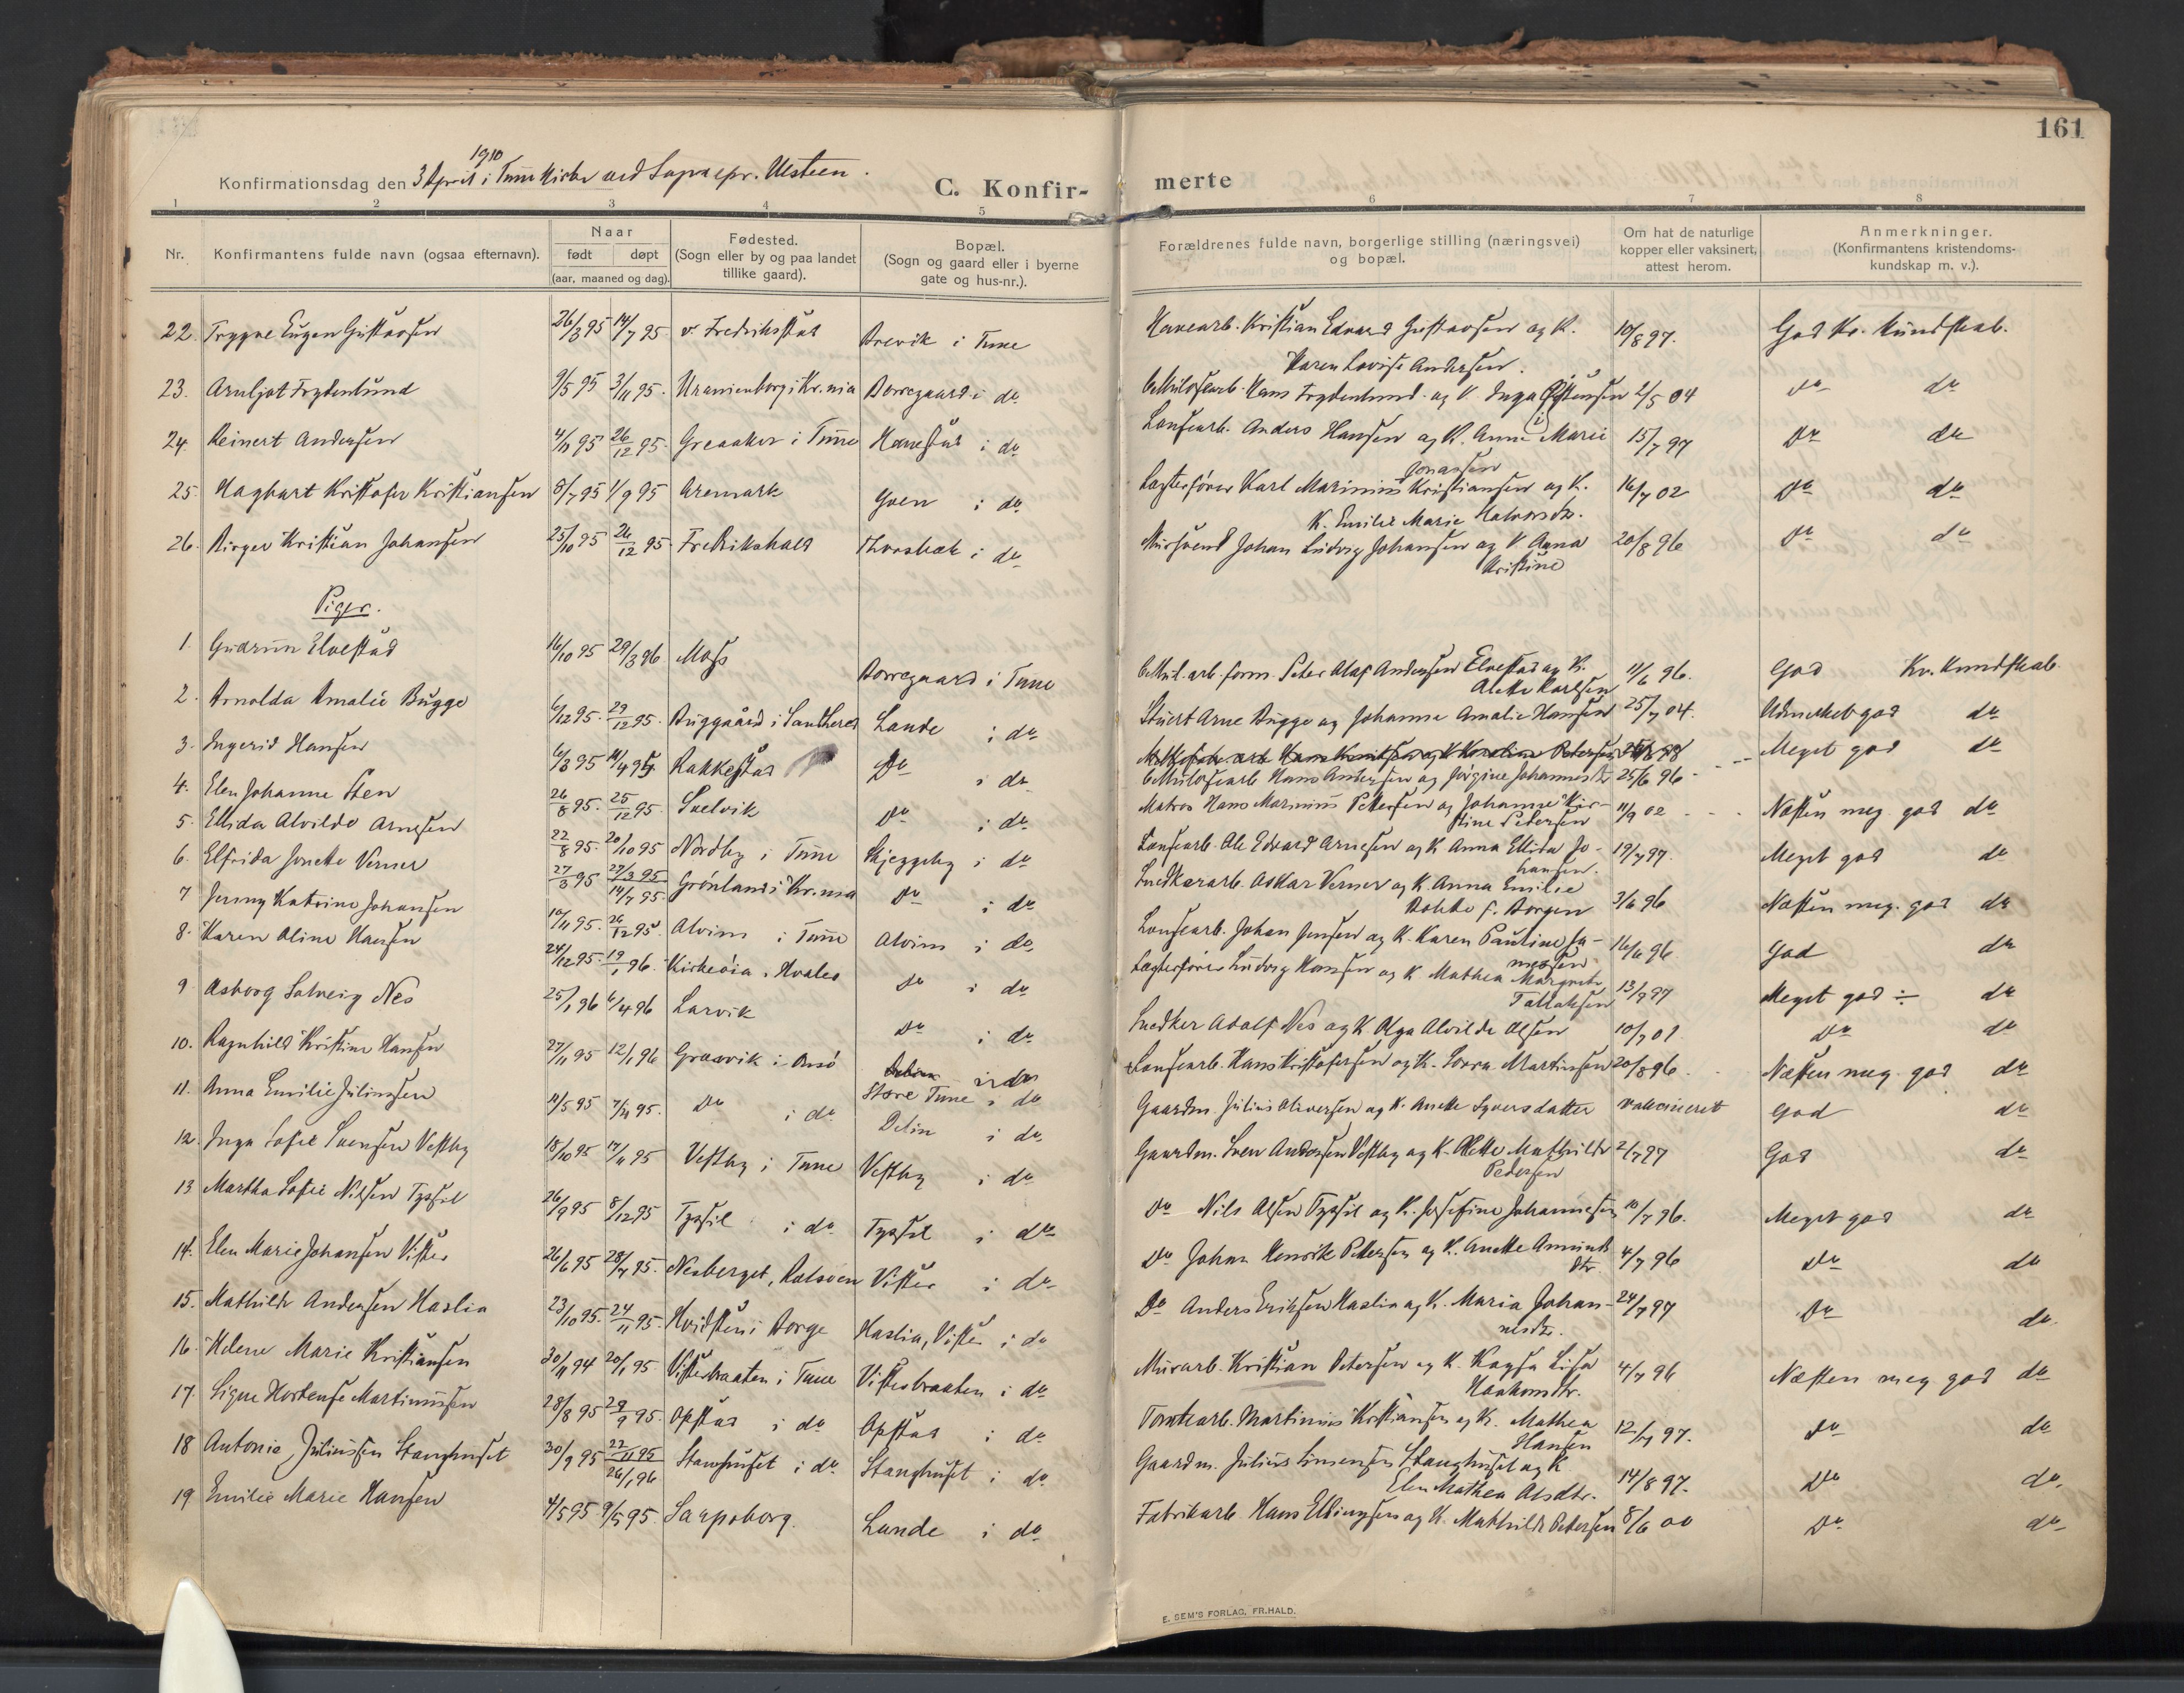 161
1910
Konfirmationsdag den 3 April i Tune Kirke ved Sognepr. Ulsteen.
C. Konfir- merte
1 2 3 4 5 6 7 8
Nr. Konfirmantens fulde navn (ogsaa efternavn). Naar født døpt (aar, maaned og dag). Fødested. (Sogn eller by og paa landet tillike gaard). Bopæl. (Sogn og gaard eller i byerne gate og hus-nr.). Forældrenes fulde navn, borgerlige stilling (næringsvei) og bopæl. Om hat de naturlige kopper eller vaksinert, attest herom. Anmerkninger. (Konfirmantens kristendoms-kundskap m. v.).
22. Trygve Eugen Gustavsen 26/3 95 14/7 95 v. Fredriksstad Brevik i Tune Havearb. Kristian Edvard Gustavsen og K. Karen Lovise Andersen. 10/8 97. God Kr. kundskab.
23. Arnljot Frydenlund 9/5 95 3/11 95. Uranienborg i Kr.nia Borregaard i do Cellulosearb. Hans Frydenlund og K. Inga 2/5 04 do do
24. Reinert Andersen 4/11 95 26/12 95. Greaaker i Tune Hannestad i do Lønsearb. Anders Hansen og K. Anne Marie Jonassen 15/7 97 do do
25. Hagbart Kristofer Kristiansen 8/7 95 1/9 95 Aremark Yven i do Lægterfører Karl Marinius Kristiansen og K. K. Emilie Marie Halvorsdtr. 16/7 02 do do
26. Birger Kristian Johansen 25/10 95 26/12 95. Fredrikshald Thorsbæk i do Mursvend Johan Ludvig Johansen og K. Anna Kristine 20/8 96 do do
Piger.
1. Gudrun Elvestad 16/10 95 29/3 96 Moss Borregaard i Tune Cellul. arb. form. Peter Olaf Andersen Elvestad og K. Alette Karlsen 11/6 96. God Kr. Kundskab.
2. Arnolda Amalie Bugge 6/12 95. 29/12 95. Buggaard i Sandhered Lande i do Stuert Arne Bugge og Johanne Amalie Hansen 25/7 04. Udmerket god do
3. Ingerid Hansen 6/3 95 14/4 95. Rakkestad do i do Cellulosearb Hans Andersen og Jørgine Johannesdtr 25/6 96 Meget god do
4. Elen Johanne Sten 26/8 95. 25/12 95. Svelvik do i do Matros Hans Marinius Pettersen og Johanne Kirstine Petersen 11/9 02 Næsten meg. god do
5. Ellida Alvilde Arnesen 22/8 95. 20/10 95 Nordby i Tune Skjeggeby i do Lønsearb. Ole Edvard Arnesen og K. Anna Ellida Johansen. 19/7 97. Meget god do
6. Elfrida Jonette Verner 27/3 95 27/3 95 14/7 95. Grønland i Kr.nia do i do Snedkerarb. Oskar Verner og K. Anna Emilie Bakke f. Borgen 3/6 96 Næsten meg. god do
7 Jenny Katrine Johansen 10/11 95. 26/12 95. Alvim i Tune Alvim i do Lønsearb. Johan Jensen og K. Karen Pauline 16/6 96 God do
8. Karen Oline Hansen 24/12 95. 19/1 96. Kirkeøia, Hvaler do i do Lægterfører Ludvig Hansen og K. Mathea Margrete Tallaksen 13/9 97 Meget god ÷ do
9 Asborg Solveig Nes 25/1 96 6/4 96 Larvik do i do Snedker Adolf Nes og K. Olga Alvilde Olsen 10/7 01 do do
10. Ragnhild Kristine Hansen 27/11 95 12/1 96 Græsvik i Onsø Store Tune i do Lønsearb. Hans Kristofersen og K. Lovra Martinsen 20/8 96 Næsten meg. god do
11. Anna Emilie Juliussen 11/5 95 7/7 95. do i do Delin i do Gaardm. Julius Oliversen og K. Anette Syversdatter vakcineret God do
12. Inga Sofie Svensen Vestby 18/10 95 17/11 95 Vestby i Tune Vestby i do Gaardm. Sven Andersen Vestby og K. Alette Mathilde Pedersen 2/7 97 God do
13 Martha Sofie Nilsen Tyssil 26/9 95 8/12 95 Tyssil i do Tyssil i do do Nils Olsen Tyssil og K. Josefine Johannesen 10/7 96. Meget god do
14. Elen Marie Johansen Vister 26/6 95 28/7 95. Nesberget, Rolsøen Vister i do do Johan Henrik Pettersen og K. Anette Amundsdtr. 4/7 96 do do
15. Mathilde Andersen Haslia 23/10 95. 24/11 95. Hvidsten i Borge Haslia, Vister i do do Anders Eriksen Haslia og K. Maria Johannesdtr. 24/7 97 do do.
16. Helene Marie Kristiansen 30/11 94 20/1 95 Visterbraaten i Tune Visterbraaten i do Murarb. Kristian Petersen og K. Kaysa Lisa Haakonsdtr. 4/7 96 Næsten meg god do
17. Signe Hortense Martinussen 28/8 95 29/9 95. Opstad i do Opstad i do Tomtearb. Martinius Kristiansen og K. Mathea Hansen 12/7 97. do do
18 Antonie Juliussen Stanghuset 30/9 95 22/11 95 26/1 96 Stanghuset i do. Stanghuset i do Gaardm. Julius Simensen Stanghuset og K Elen Mathea Olsdtr. 14/8 97. do do.
19 Emilie Marie Hansen 4/5 95. 9/5 95. Sarpsborg. Lande i do Fabrikarb. Hans Ellingsen og K. Mathilde Petersen 8/6 00 do do
E. SEM'S FORLAG, FR.HALD.